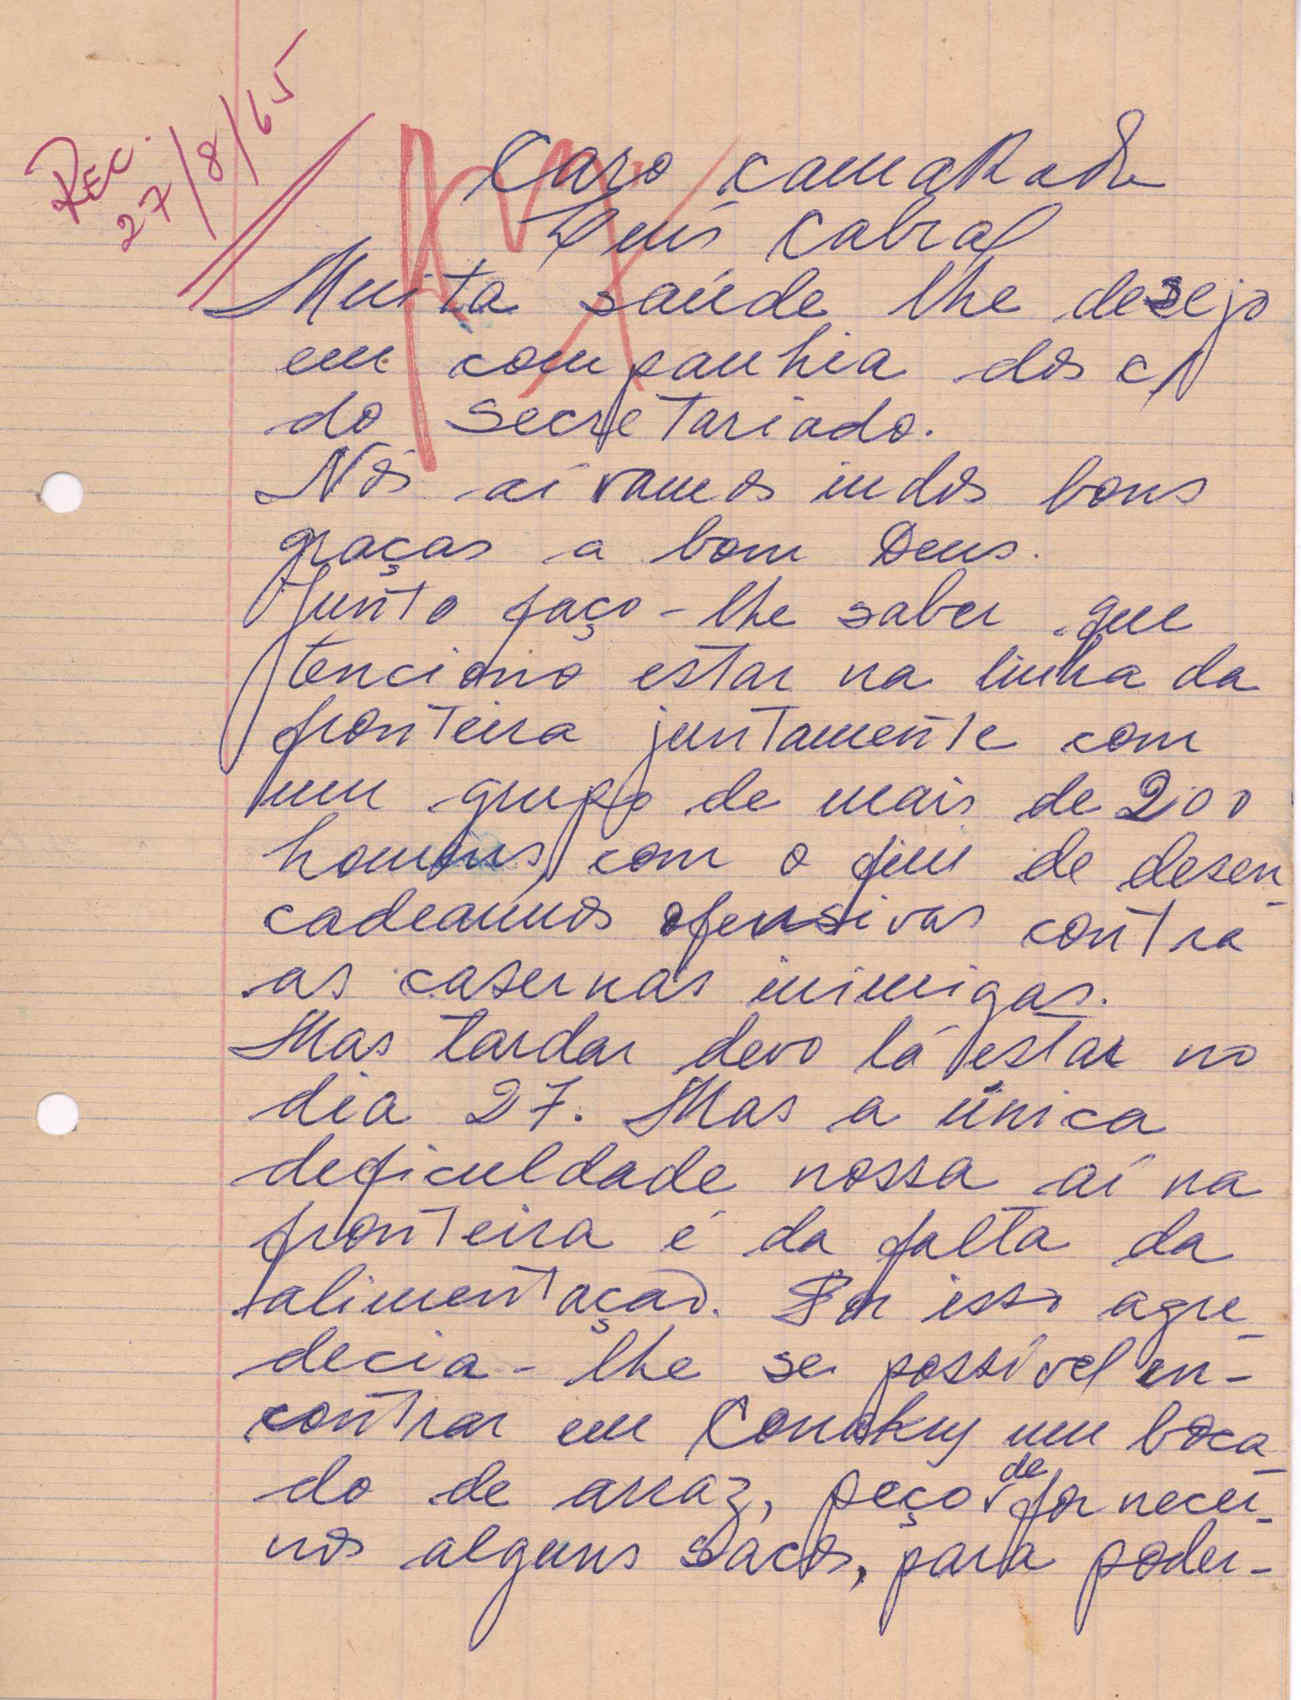 Rec.
27/8/65
Caro camaRada
Luís Cabral
Muita saúde lhe desejo
em companhia dos c/
do Secretariado.
Nós aí vamos indos bons
graças a bom Deus.
Junto faço-lhe saber que
tenciono estar na linha da
fronteira juntamente com
um grupo de mais de 200
homens com o fim de desen-
cadearmos ofensivas contra
as casernas inimigas.
Mas tardar devo lá estar no
dia 27. Mas a única
deficuldade nossa aí na
fronteira é da falta da
alimentação. Por isso agre-
decia-lhe se possível en-
contrar em Conakry um boca-
do de arraz, peço de fornecer-
nos alguns sacos, para poder-